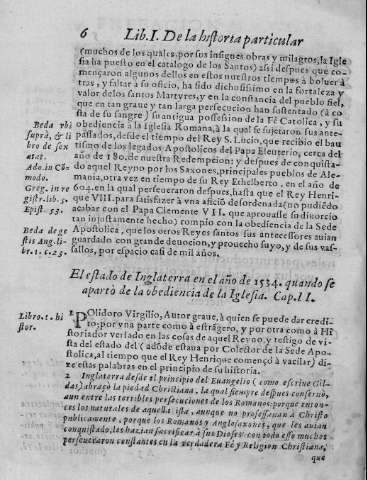 6 Lib. I. De la historia particular
(muchos de los quales, por sus insignes obras y milagros, la Igle
sia ha puesto en el catalogo de los Santos) assi despues que co-
mençaron algunos dellos en estos nuestros tiempos à boluer à
tras, y faltar à su oficio, ha sido dichosissimo en la fortaleza y
valor de los santos Martyres, y en la constancia del pueblo fiel,
que en tan graue y tan larga persecucion han sustentado (à co
sta de su sangre) su antigua possession de la Fè Catolica, y su
obediencia à la Iglesia Romana, à la qual se sujetaron sus ante-
passados, desde el tiempo del Rey S. Lucio, que recibio el bau
tismo de los legados Apostolicos del Papa Eleuterio, cerca del
año de 180. de nuestra Redempcion: y despues de conquista-
do aquel Reyno por los Saxones, principales pueblos de Ale-
mania, otra vez en tiempo de su Rey Ethelberto, en el año de
604. en la qual perseueraron despues, hasta que el Rey Henri-
que VIII. para satisfazer à vna aficiō desordenada (no pudiēdo
acabar con el Papa Clemente VII. que aprouasse su diuorcio
tan injustamente hecho) rompio con la obediencia de la Sede
Apostolica, que los otros Reyes santos sus antecessores auian
guardado con grande deuocion, y prouecho suyo, y de sus vas-
sallos, por espacio casi de mil años.
Beda vbi
suprà, & li
bro de sex
ætat.
Ado in Cō
modo.
Greg. in re
gistr. lib. 5.
Epist. 53.
Beda de ge
stis Ang. li-
br. 1. c. 25.
El estado de Inglaterra en el año de 1534. quando se
apartò de la obediencia de la Iglesia. Cap. II.
Libro. 1. hi
stor.
1 POlidoro Virgilio, Autor graue, à quien se puede dar credi-
to, por vna parte como à estrāgero, y por otra como à Hi
storiador verlado en las cosas de aquel Reyno, y testigo de vi
sta del estado del (adōde estaua por Colector de la Sede Apo-
stolica, al tiempo que el Rey Henrique començò à vacilar) di-
ze estas palabras en el principio de su historia.
2 Inglaterra desde el principio del Euangelio (como escriue Gil-
das) abraçò la piedad Christiana, la qual siempre despues conseruò,
aun entre las terribles persecuciones de los Romanos: porque enton-
ces los naturales de aquella isla, aunque no professauan à Christo
publicamente, porque los Romanos y Anglosaxones, que les auian
conquistado, les hazian sacrificar à sus Dioses: con todo esso muchos
perseueraron constantes en la verdadera Fè y Religion Christiana,
que